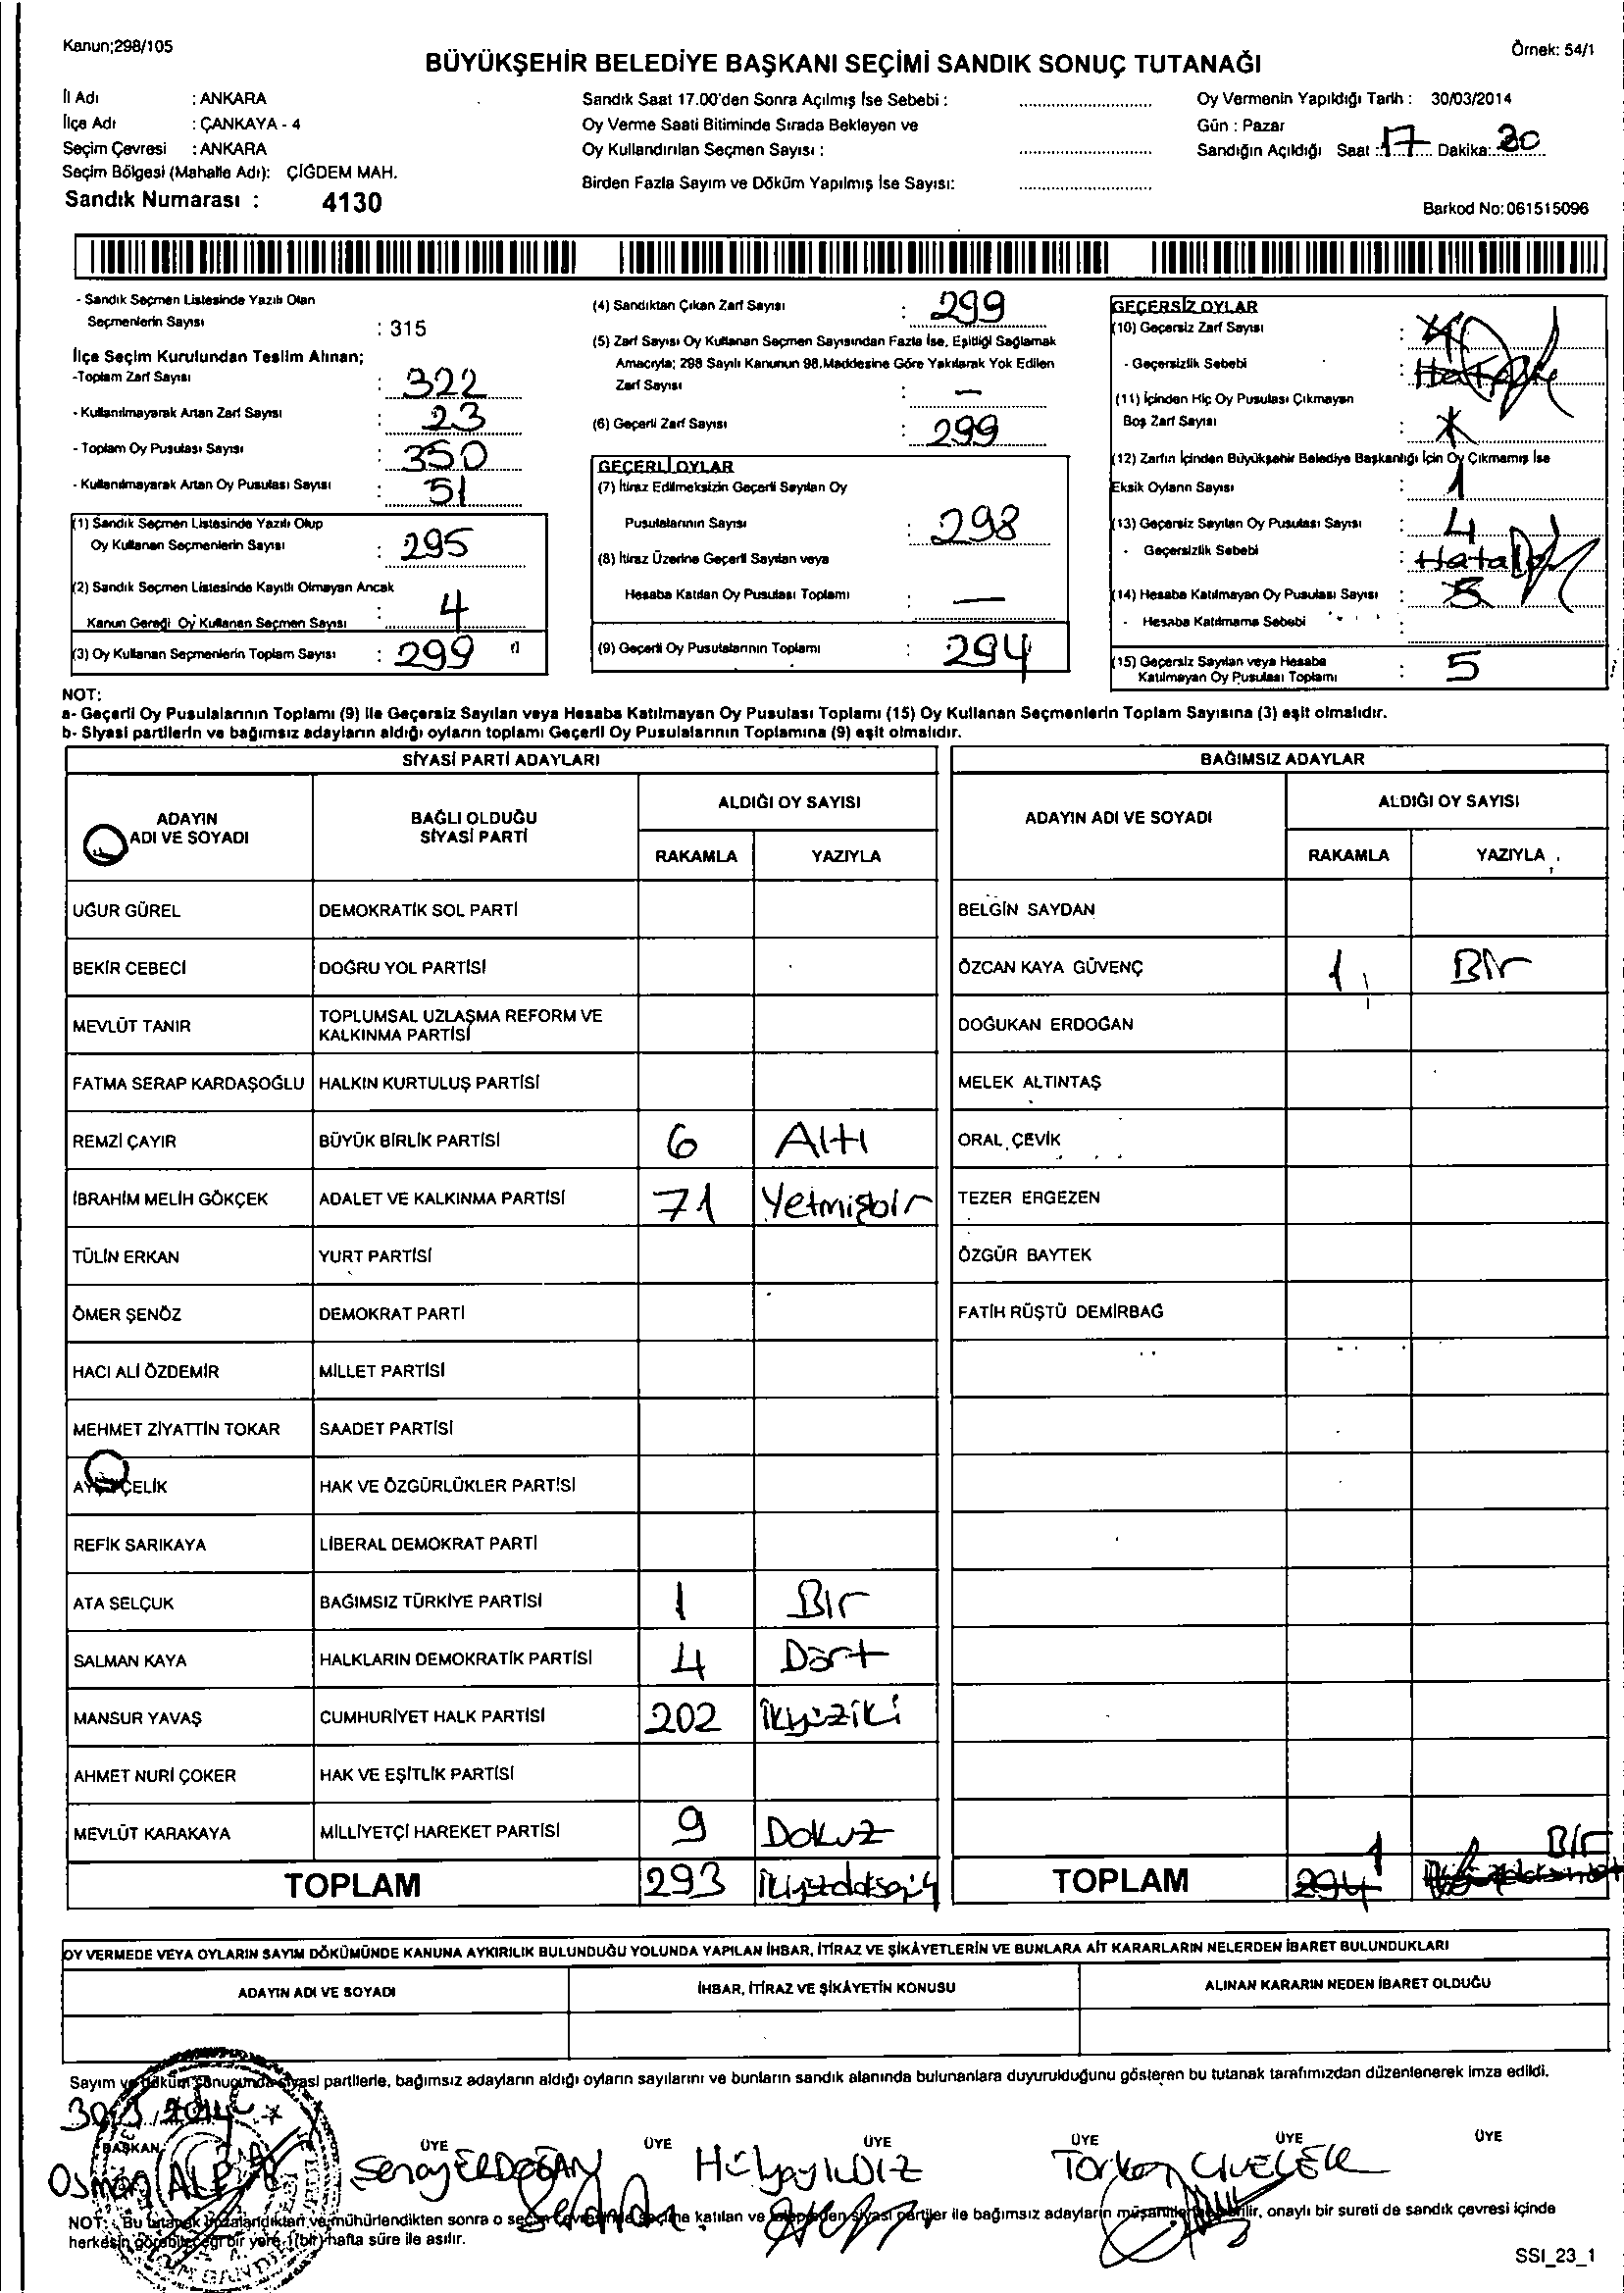 Kanun;298/105
Örnek: 54/1
BÜYÜKŞEHİR BELEDİYE BAŞKANI SEÇİMİ SANDIK SONUÇ TUTANAĞI
İl Adı : ANKARA
İlçe Adı : ÇANKAYA - 4
Seçim Çevresi : ANKARA
Seçim Bölgesi (Mahalle Adı): ÇİĞDEM MAH.
Sandık Numarası : 4130
Sandık Saat 17.00'den Sonra Açılmış İse Sebebi :
Oy Verme Saati Bitiminde Sırada Bekleyen ve
Oy Kullandırılan Seçmen Sayısı :
Birden Fazla Sayım ve Döküm Yapılmış İse Sayısı:
Oy Vermenin Yapıldığı Tarih : 30/03/2014
Gün : Pazar
Sandığın Açıldığı Saat : 17 Dakika: 30
Barkod No:061515096
- Sandık Seçmen Listesinde Yazılı Olan
Seçmenlerin Sayısı : 315
İlçe Seçim Kurulundan Teslim Alınan;
-Toplam Zarf Sayısı : 322
- Kullanılmayarak Artan Zarf Sayısı : 23
- Toplam Oy Pusulası Sayısı : 350
- Kullanılmayarak Artan Oy Pusulası Sayısı : 51
(1) Sandık Seçmen Listesinde Yazılı Olup
Oy Kullanan Seçmenlerin Sayısı : 295
(2) Sandık Seçmen Listesinde Kayıtlı Olmayan Ancak
Kanun Gereği Oy Kullanan Seçmen Sayısı : 4
(3) Oy Kullanan Seçmenlerin Toplam Sayısı : 299
(4) Sandıktan Çıkan Zarf Sayısı : 299
(5) Zarf Sayısı Oy Kullanan Seçmen Sayısından Fazla İse, Eşitliği Sağlamak
Amacıyla; 298 Sayılı Kanunun 98.Maddesine Göre Yakılarak Yok Edilen
Zarf Sayısı : —
(6) Geçerli Zarf Sayısı : 299
GEÇERLİ OYLAR
(7) İtiraz Edilmeksizin Geçerli Sayılan Oy
Pusulalarının Sayısı : 298
(8) İtiraz Üzerine Geçerli Sayılan veya
Hesaba Katılan Oy Pusulası Toplamı : —
(9) Geçerli Oy Pusulalarının Toplamı : 294
GEÇERSİZ OYLAR
(10) Geçersiz Zarf Sayısı :
- Geçersizlik Sebebi :
(11) İçinden Hiç Oy Pusulası Çıkmayan
Boş Zarf Sayısı :
(12) Zarfın İçinden Büyükşehir Belediye Başkanlığı İçin Oy Çıkmamış İse
Eksik Oyların Sayısı : 1
(13) Geçersiz Sayılan Oy Pusulası Sayısı : 4
- Geçersizlik Sebebi : Hatalı
(14) Hesaba Katılmayan Oy Pusulası Sayısı :
- Hesaba Katılmama Sebebi :
(15) Geçersiz Sayılan veya Hesaba
Katılmayan Oy Pusulası Toplamı : 5
NOT:
a- Geçerli Oy Pusulalarının Toplamı (9) ile Geçersiz Sayılan veya Hesaba Katılmayan Oy Pusulası Toplamı (15) Oy Kullanan Seçmenlerin Toplam Sayısına (3) eşit olmalıdır.
b- Siyasi partilerin ve bağımsız adayların aldığı oyların toplamı Geçerli Oy Pusulalarının Toplamına (9) eşit olmalıdır.
SİYASİ PARTİ ADAYLARI
ADAYIN ADI VE SOYADI
BAĞLI OLDUĞU SİYASİ PARTİ
ALDIĞI OY SAYISI
RAKAMLA YAZIYLA
UĞUR GÜREL DEMOKRATİK SOL PARTİ
BEKİR CEBECİ DOĞRU YOL PARTİSİ
MEVLÜT TANIR TOPLUMSAL UZLAŞMA REFORM VE KALKINMA PARTİSİ
FATMA SERAP KARDAŞOĞLU HALKIN KURTULUŞ PARTİSİ
REMZİ ÇAYIR BÜYÜK BİRLİK PARTİSİ 6 Altı
İBRAHİM MELİH GÖKÇEK ADALET VE KALKINMA PARTİSİ 71 Yetmişbir
TÜLİN ERKAN YURT PARTİSİ
ÖMER ŞENÖZ DEMOKRAT PARTİ
HACI ALİ ÖZDEMİR MİLLET PARTİSİ
MEHMET ZİYATTİN TOKAR SAADET PARTİSİ
ÇELİK HAK VE ÖZGÜRLÜKLER PARTİSİ
REFİK SARIKAYA LİBERAL DEMOKRAT PARTİ
ATA SELÇUK BAĞIMSIZ TÜRKİYE PARTİSİ 1 Bir
SALMAN KAYA HALKLARIN DEMOKRATİK PARTİSİ 4 Dört
MANSUR YAVAŞ CUMHURİYET HALK PARTİSİ 202 İkiyüziki
AHMET NURİ ÇOKER HAK VE EŞİTLİK PARTİSİ
MEVLÜT KARAKAYA MİLLİYETÇİ HAREKET PARTİSİ 9 Dokuz
TOPLAM 293
BAĞIMSIZ ADAYLAR
ADAYIN ADI VE SOYADI
ALDIĞI OY SAYISI
RAKAMLA YAZIYLA
BELGİN SAYDAN
ÖZCAN KAYA GÜVENÇ 1 Bir
DOĞUKAN ERDOĞAN
MELEK ALTINTAŞ
ORAL ÇEVİK
TEZER ERGEZEN
ÖZGÜR BAYTEK
FATİH RÜŞTÜ DEMİRBAĞ
TOPLAM 294 1 Bir
OY VERMEDE VEYA OYLARIN SAYIM DÖKÜMÜNDE KANUNA AYKIRILIK BULUNDUĞU YOLUNDA YAPILAN İHBAR, İTİRAZ VE ŞİKÂYETLERİN VE BUNLARA AİT KARARLARIN NELERDEN İBARET BULUNDUKLARI
ADAYIN ADI VE SOYADI İHBAR, İTİRAZ VE ŞİKÂYETİN KONUSU ALINAN KARARIN NEDEN İBARET OLDUĞU
Sayım ve döküm sonucunda siyasi partilerle, bağımsız adayların aldığı oyların sayılarını ve bunların sandık alanında bulunanlara duyurulduğunu gösteren bu tutanak tarafımızdan düzenlenerek imza edildi.
BAŞKAN ÜYE ÜYE ÜYE ÜYE ÜYE ÜYE
Osman ALP Senay ERDOĞAN Hülya YILDIZ
NOT: Bu tutanak imzalandıktan ve mühürlendikten sonra o seçim çevresinde seçime katılan ve siyasi partiler ile bağımsız adayların müşahitlerine verilir, onaylı bir sureti de sandık çevresi içinde
herkesin görebileceği bir yere 1(bir) hafta süre ile asılır.
SSI_23_1